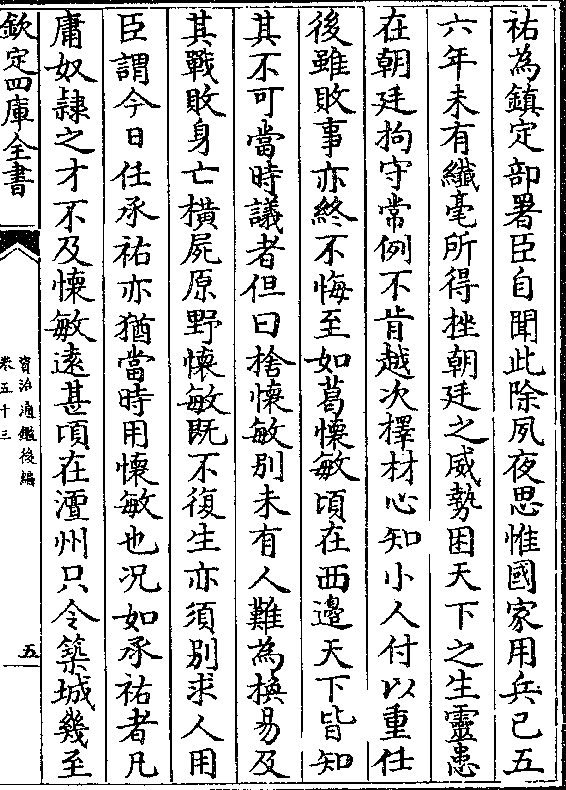 祐為鎮定部署臣自聞此除夙夜思惟國家用兵已五
六年未有纖毫所得挫朝廷之威勢困天下之生靈患
在朝廷拘守常例不肯越次擇材心知小人付以重任
後雖敗事亦終不悔至如葛懐敏頃在西邉天下皆知
其不可當時議者但曰捨懐敏别未有人難為換易及
其戰敗身亡橫屍原野懐敏既不復生亦須别求人用
臣謂今日任承祐亦猶當時用懐敏也况如承祐者凡
庸奴隷之才不及懐敏逺甚頃在澶州只令築城幾至
欽定四庫全書
資治通鑑後編
卷五十三
五